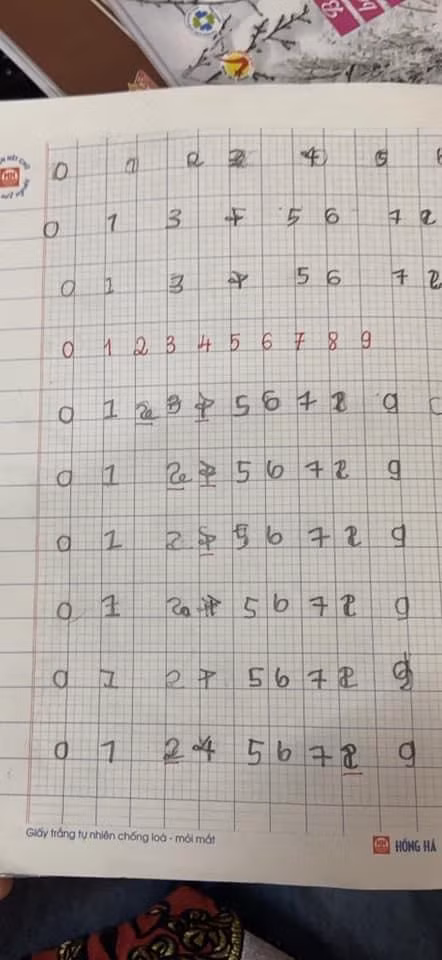 0 1 2 3 4 5 6
0 1 3 4 5 6 7 2
0 1 3 4 5 6 7 2
0 1 2 3 4 5 6 7 8 9
0 1 2 3 4 5 6 7 2 9
0 1 2 4 5 6 7 2 9
0 1 2 4 5 6 7 2 9
0 1 2 4 5 6 7 2 9
0 1 2 4 5 6 7 2 9
0 1 2 4 5 6 7 2 9
Giấy trắng tự nhiên chống loá - mỏi mắt
HỒNG HÀ